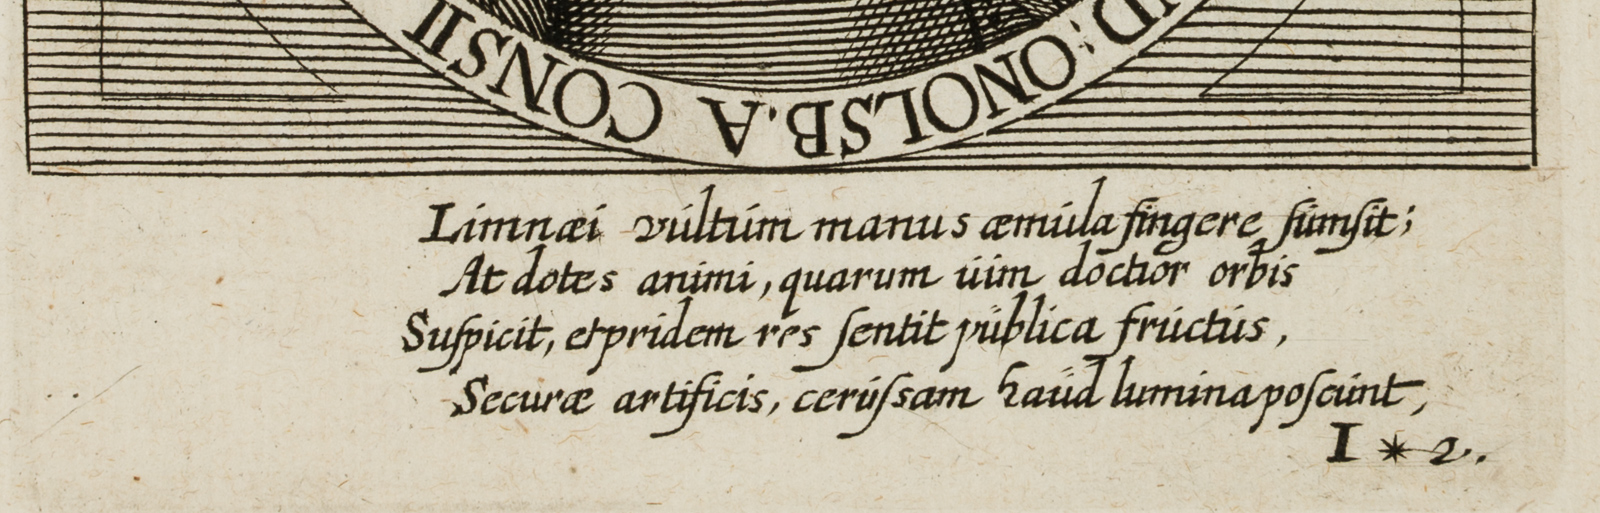 D: ONOLSB. A CONSII
Limnæi vultum manus æmula fingere sumsit;
At dotes animi, quarum uim doctior orbis
Suspicit, et pridem res sentit publica fructus,
Securæ artificis, cerussam haud lumina poscunt,
I * 2.